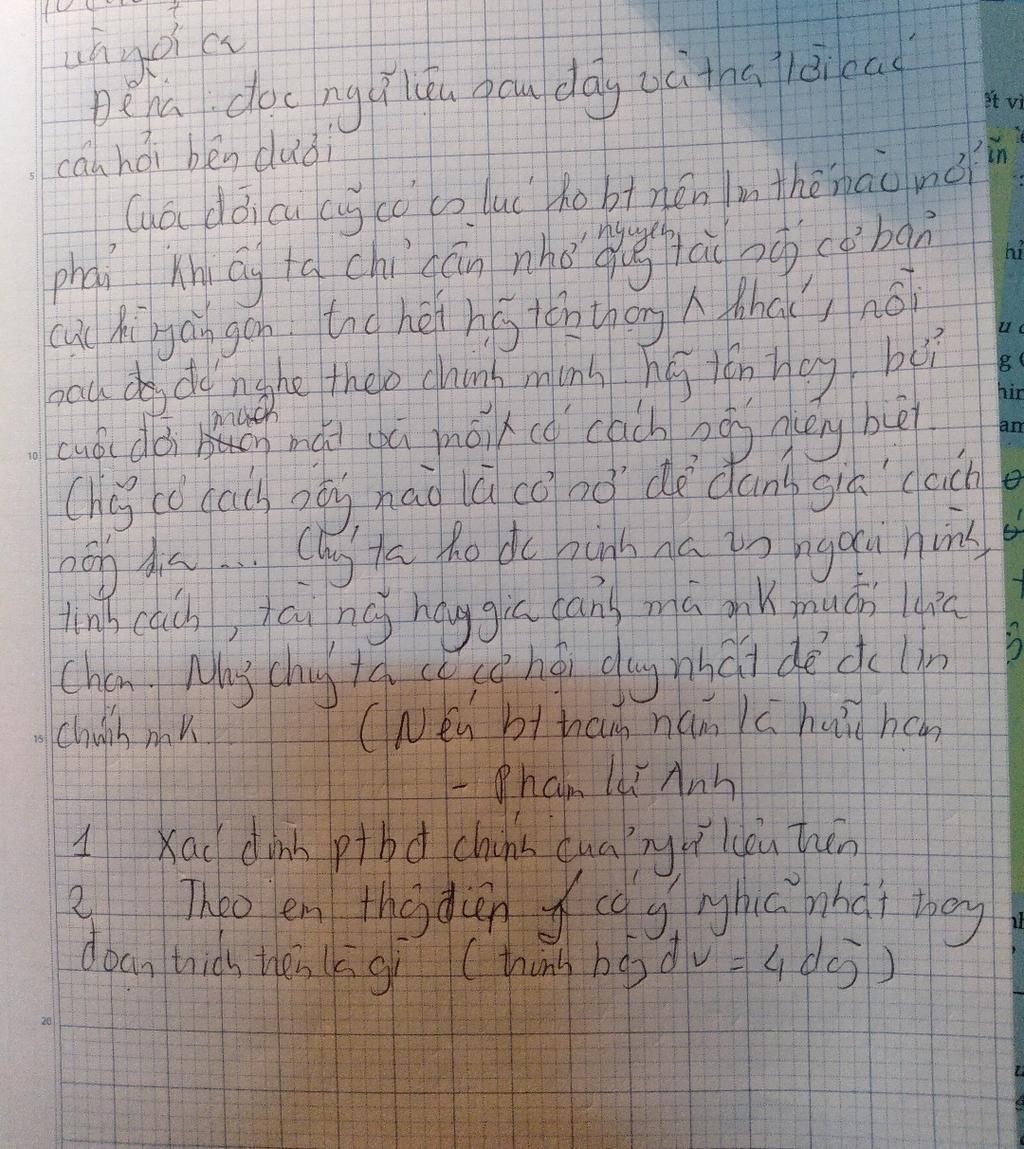 và nơi ca
Đề ra: đọc ngữ liệu sau đây và trả lời các
câu hỏi bên dưới
Cuộc đời có lúc ko bt nên lm thế nào mới
phải Khi ấy ta chỉ cần nhớ nguyên tắc sống cơ bản
cực kì ngắn gọn: trc hết hãy tôn trọng khác, rồi
sau đó để nghe theo chính mình. hãy tôn trọng. bởi
cuộc đời muôn mặt và mỗi có cách sống riêng biệt.
Chẳng có cách sống nào là cơ sở để đánh giá cách
sống kia ... Chúng ta ko đc sinh ra vs ngoại hình,
tính cách, tài năng hay gia cảnh mà mk muốn lựa
chọn. Nhưng chúng ta có cơ hội duy nhất để đc là
chính mk (Nếu bt trăm năm là hữu hạn
- Phạm Lữ Ân
1 Xác định ptbđ chính của ngữ liệu trên
2 Theo em thông điệp có ý nghĩa nhất trong
đoạn trích trên là gì (trình bày đv = 4 dòng)